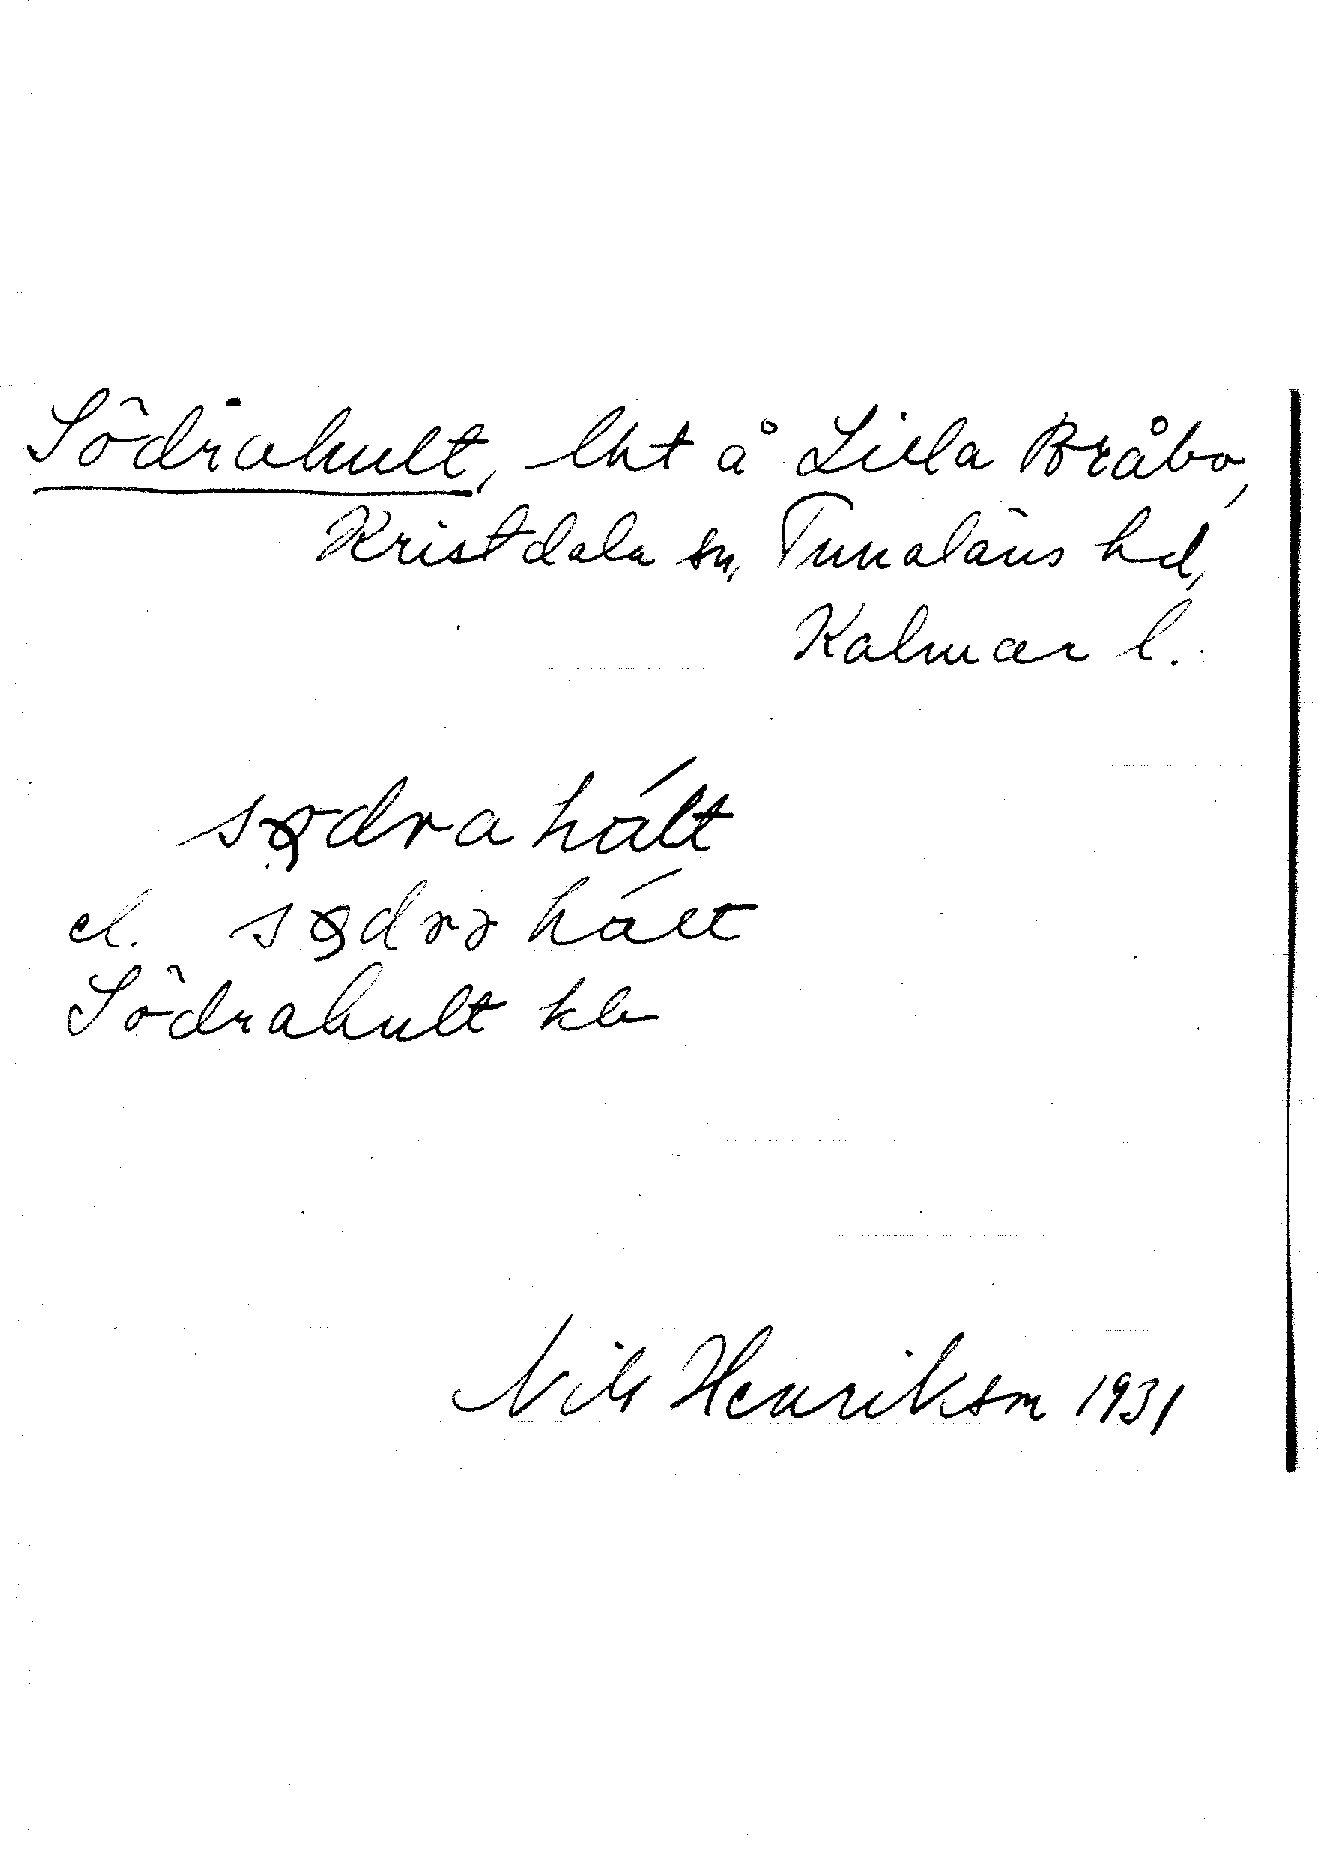 Södrahult, lht å Lilla Bråbo,
Kristdala sn, Tunaläns hd,
Kalmar l.
sødrahált
el. sødrə hált
Södrahult kb
Nils Henrikson 1931